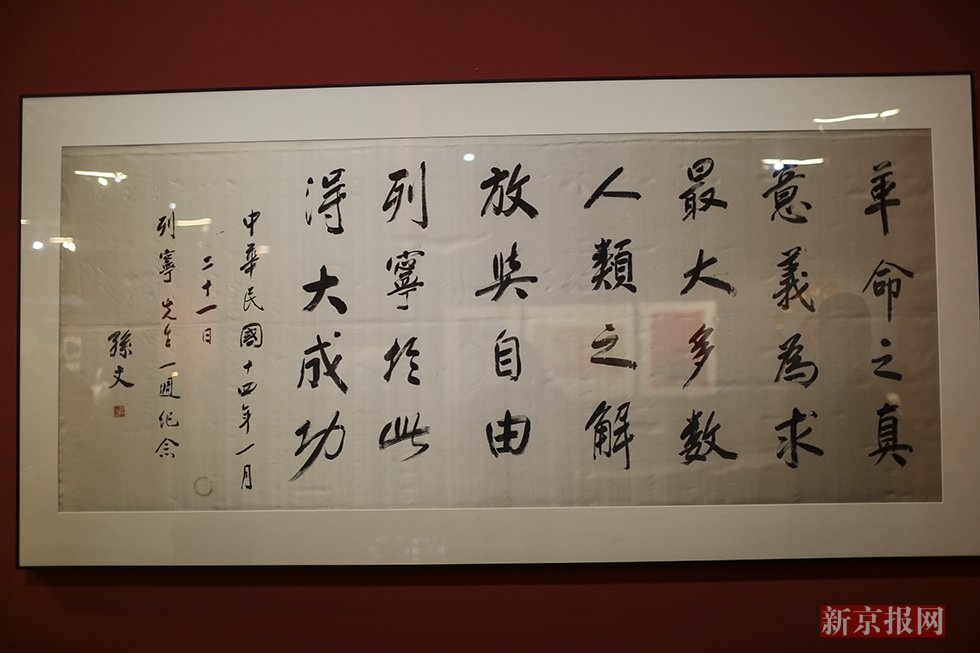 革命之真
意義為求
最大多数
人類之解
放與自由
列寧於此
得大成功
中華民國十四年一月
二十一日
列寧先生一週纪念
孫文
新京报网